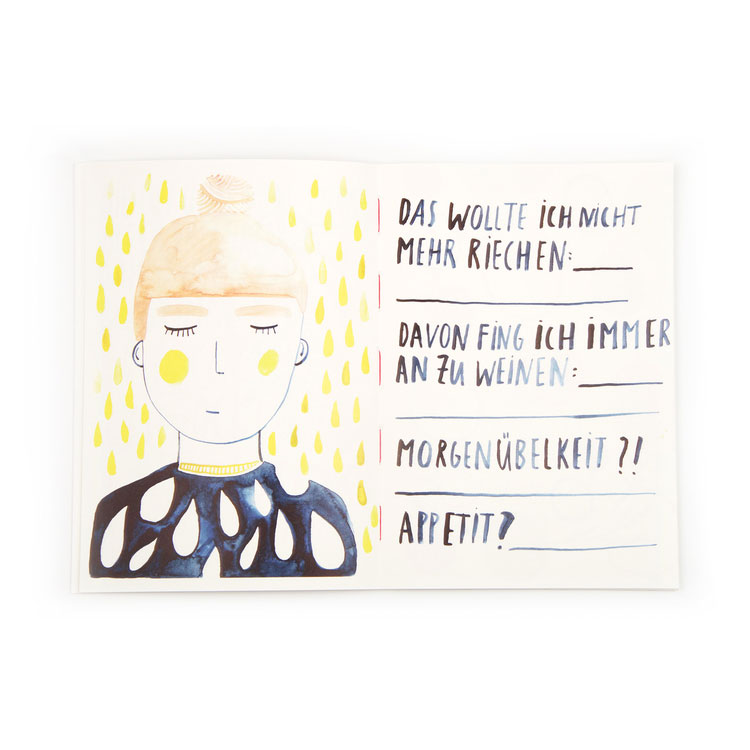 DAS WOLLTE ICH NICHT
MEHR RIECHEN:
DAVON FING ICH IMMER
AN ZU WEINEN:
MORGENÜBELKEIT?!
APPETIT?